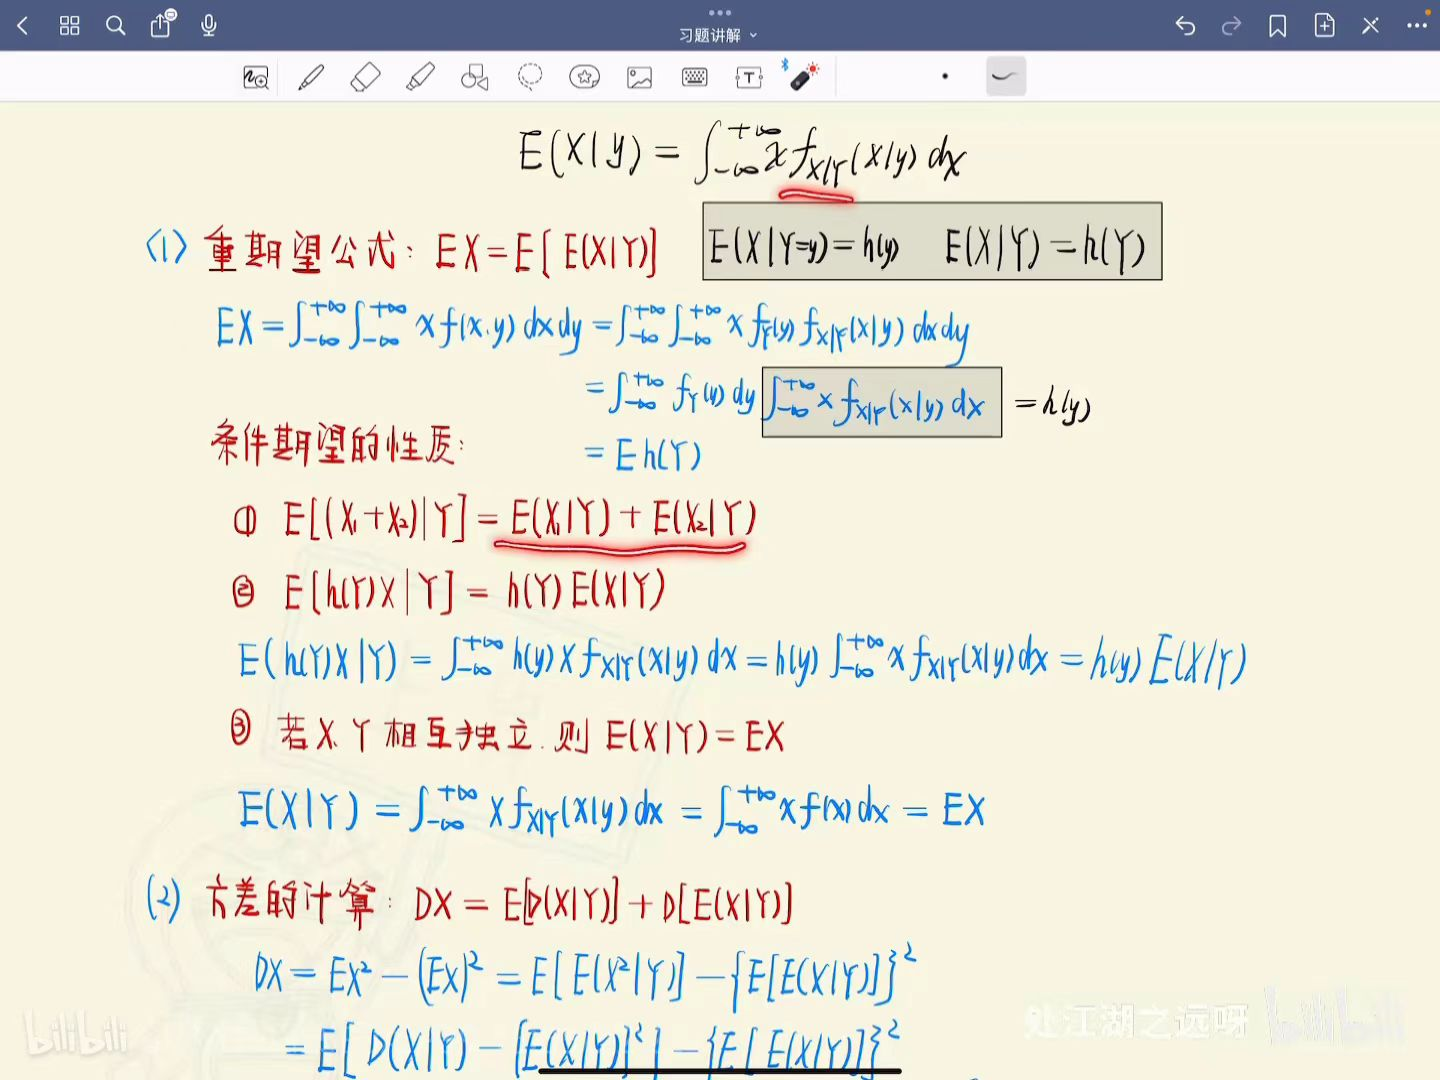 习题讲解
E(X|y) = ∫_{-∞}^{+∞} x f_{X|Y}(x|y) dx
(1) 重期望公式: EX = E[E(X|Y)] E(X|Y=y) = h(y) E(X|Y) = h(Y)
EX = ∫_{-∞}^{+∞} ∫_{-∞}^{+∞} x f(x,y) dxdy = ∫_{-∞}^{+∞} ∫_{-∞}^{+∞} x f_Y(y) f_{X|Y}(x|y) dxdy
= ∫_{-∞}^{+∞} f_Y(y) dy ∫_{-∞}^{+∞} x f_{X|Y}(x|y) dx = h(y)
条件期望的性质:
= E h(Y)
① E[(X₁+X₂)|Y] = E(X₁|Y) + E(X₂|Y)
② E[h(Y)X|Y] = h(Y)E(X|Y)
E(h(Y)X|Y) = ∫_{-∞}^{+∞} h(y) x f_{X|Y}(x|y) dx = h(y) ∫_{-∞}^{+∞} x f_{X|Y}(x|y) dx = h(y) E(X|Y)
③ 若X、Y相互独立.则 E(X|Y) = EX
E(X|Y) = ∫_{-∞}^{+∞} x f_{X|Y}(x|y) dx = ∫_{-∞}^{+∞} x f(x) dx = EX
(2) 方差的计算: DX = E[D(X|Y)] + D[E(X|Y)]
DX = EX² - (EX)² = E[E(X²|Y)] - {E[E(X|Y)]}²
= E[D(X|Y) - [E(X|Y)]²] - {E[E(X|Y)]}²
处江湖之远呀 bilibili
bilibili